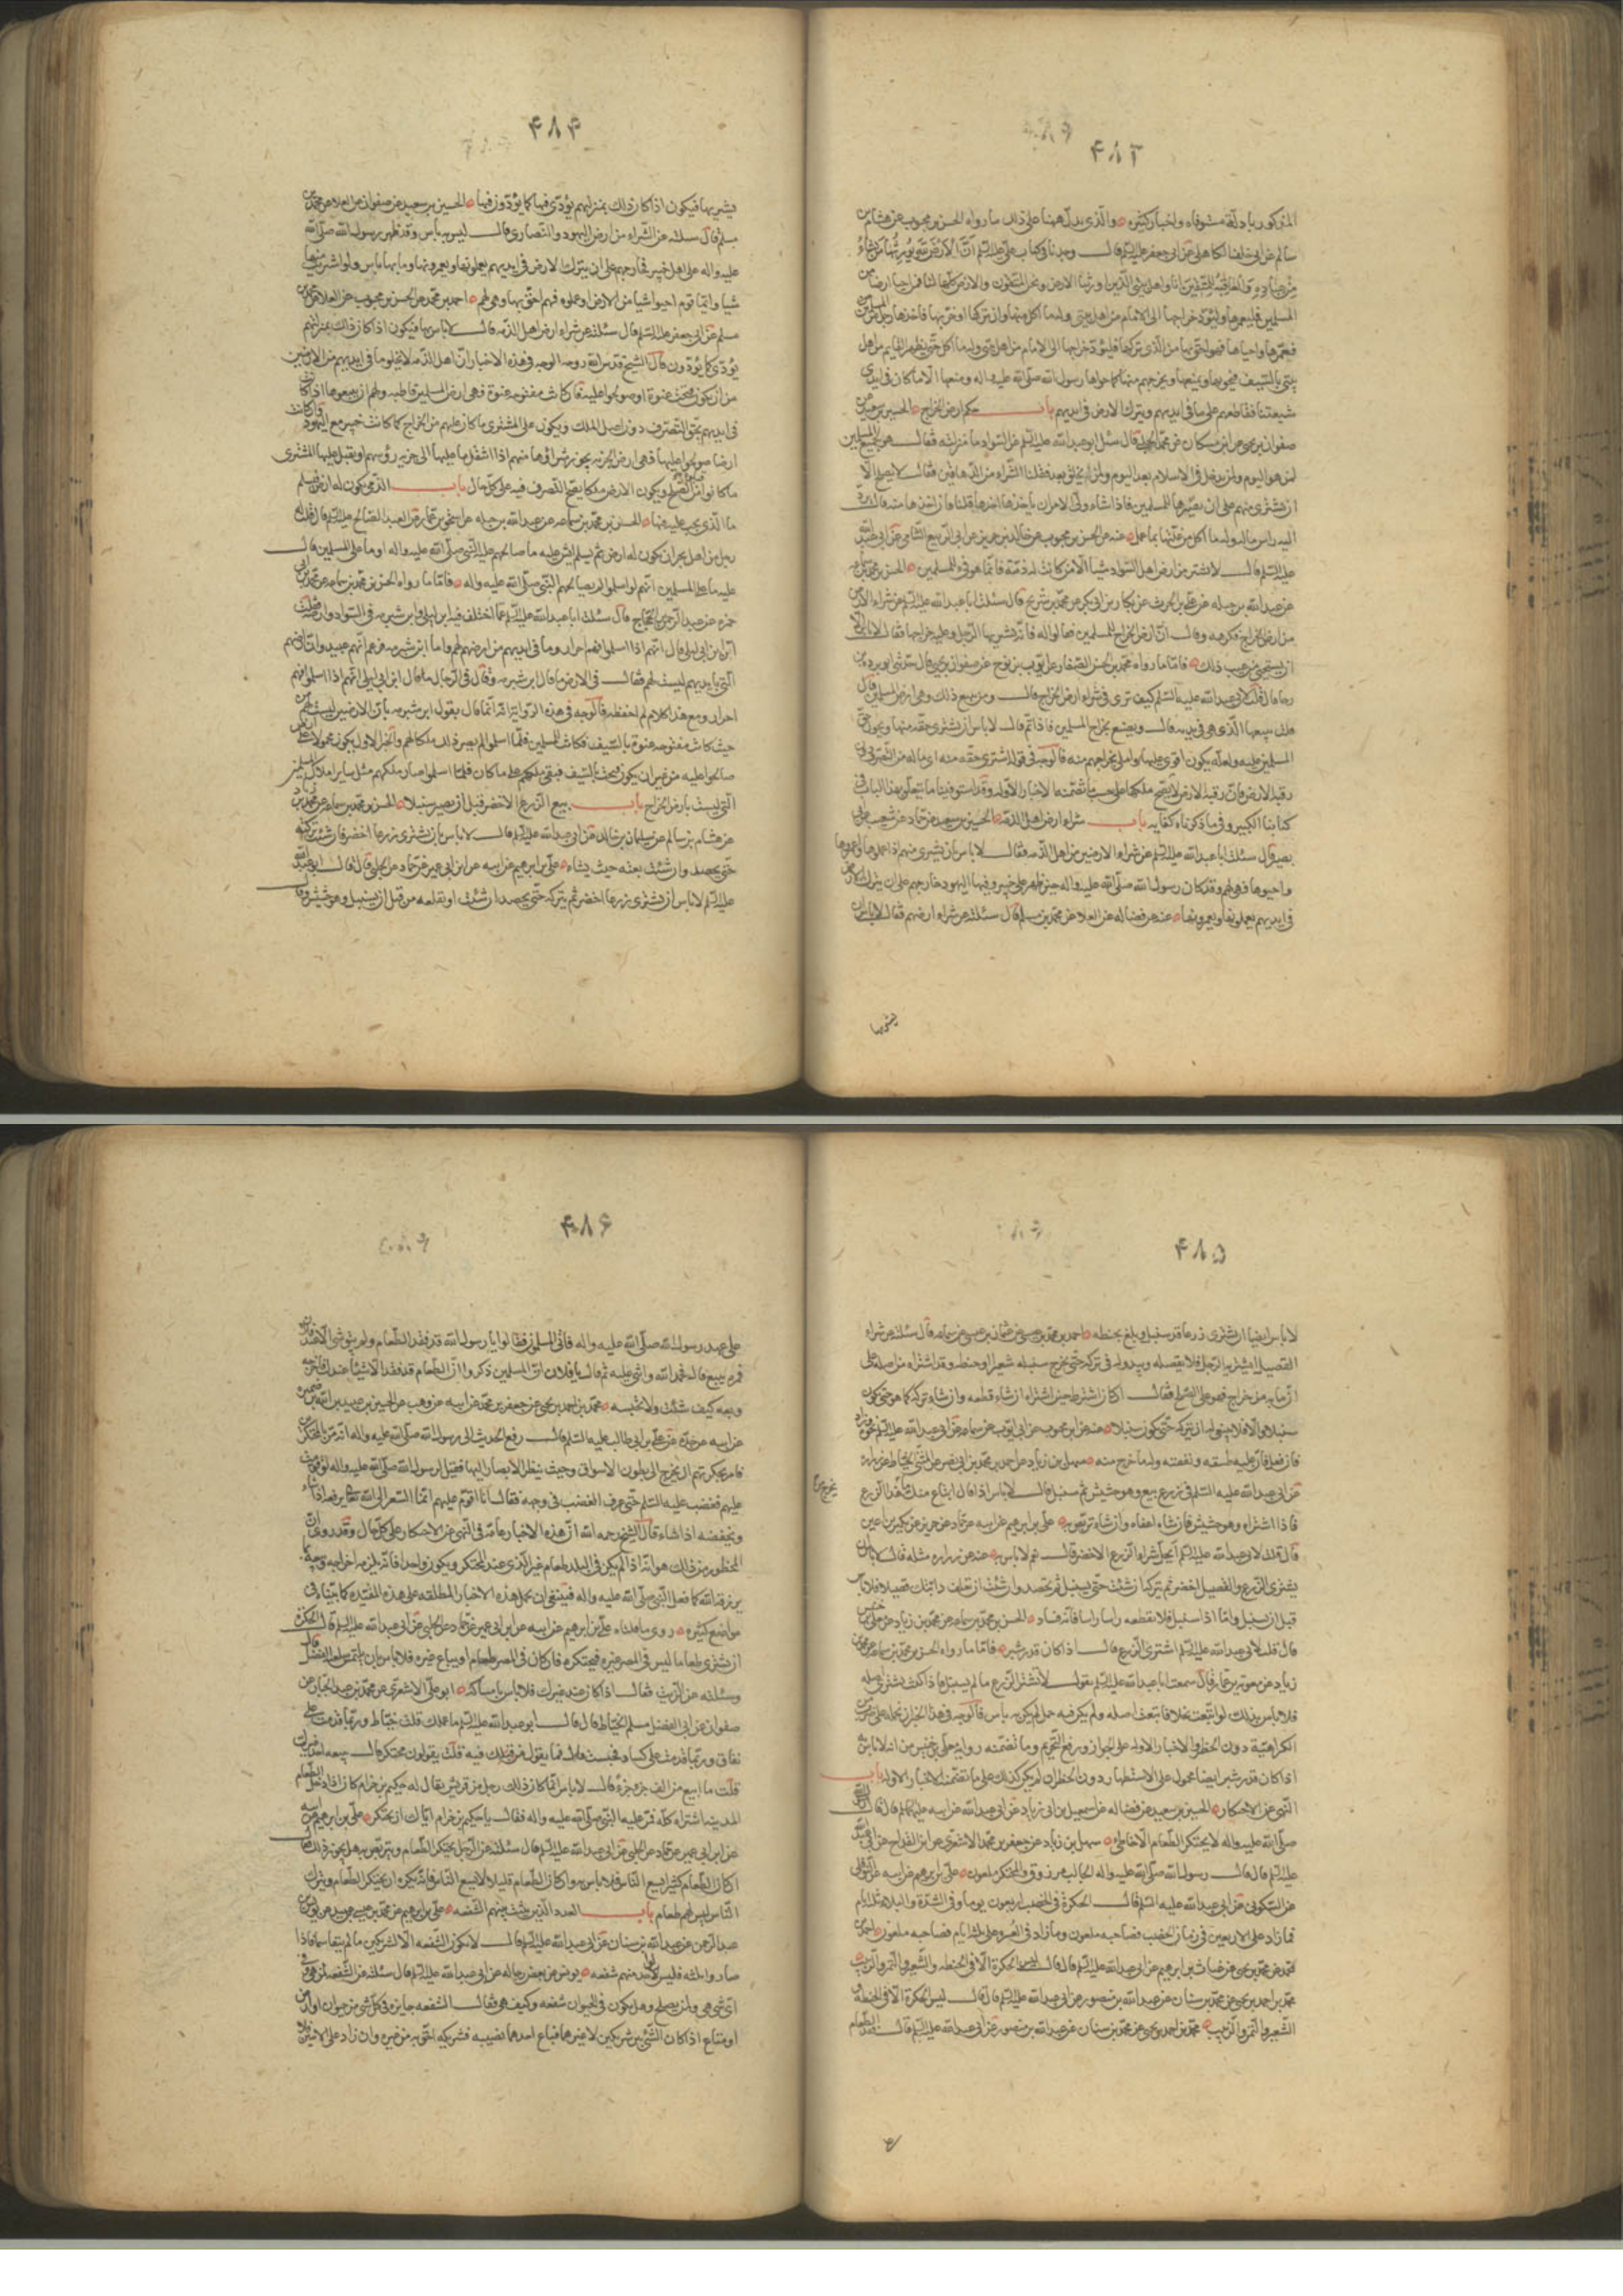 ۴۸۳
المذكور بادلة مستوفاه واخبار كثيره والذى يدل هيهنا على ذلك ما رواه الحسن بن محبوب عن هشام بن
سالم عن ابى خالد الكابلى عن ابى جعفر عليه السلم قال وجدنا فى كتاب على عليه السلم ان الارض لله يورثها من يشاء
من عباده والعاقبة للمتقين انا واهل بيتى الذين اورثنا الارض ونحن المتقون والارض كلها لنا فمن احيا ارضا من
المسلمين فليعمرها وليؤد خراجها الى الامام من اهل بيتى وله ما اكل منها وان تركها او خربها فاخذها رجل من المسلمين
فعمرها واحياها فهو احق بها من الذى تركها فليؤد خراجها الى الامام من اهل بيتى وله ما اكل حتى يظهر القايم من اهل
بيتى بالسيف فيحويها ويمنعها ويخرجهم منها كما حواها رسول الله صلى الله عليه واله ومنعها الا ما كان فى ايدى
شيعتنا فيقاطعهم على ما فى ايديهم ويترك الارض فى ايديهم باب حكم ارض الخراج الحسين بن سعيد عن
صفوان بن يحيى عن ابن مسكان عن محمد الحلبى قال سئل ابو عبد الله عليه السلم عن السواد ما منزلته فقال هو لجميع المسلمين
لمن هو اليوم ولمن يدخل فى الاسلام بعد اليوم ولمن لم يخلق بعد فقلنا الشراء من الدهاقين فقال لا يصلح الا
ان يشترى منهم على ان يصيرها للمسلمين فاذا شاء ولى الامر ان ياخذها اخذها قلنا فان اخذها منه قال يرد
اليه راس ماله وله ما اكل من غلتها بما عمل عنه عن الحسن بن محبوب عن خالد بن جرير عن ابى الربيع الشامى عن ابى عبد الله
عليه السلم قال لا تشتر من ارض اهل السواد شيئا الا من كانت له ذمة فانما هو فىء للمسلمين الحسن بن محمد بن سماعه
عن عبد الله بن جبله عن على بن الحرث عن بكار بن ابى بكر عن محمد بن شريح قال سئلت ابا عبد الله عليه السلم عن شراء الارض
من ارض الخراج فكرهه وقال ان ارض الخراج للمسلمين فقالوا له فانه يشتريها الرجل وعليه خراجها فقال لا باس الا
ان يستحيى من عيب ذلك فاما ما رواه محمد بن الحسن الصفار عن ايوب بن نوح عن صفوان بن يحيى قال حدثنى ابو بردة بن
رجا قال قلت لابى عبد الله عليه السلم كيف ترى فى شراء ارض الخراج قال ومن يبيع ذلك وهى ارض المسلمين قال
قلت يبيعها الذى هى فى يده قال ويصنع بخراج المسلمين ماذا ثم قال لا باس ان يشترى حقه منها ويحول حق
المسلمين عليه ولعله يكون اقوى عليها واملى بخراجهم منه فالوجه فى قوله اشترى حقه منه اى ماله من التصرف دون
رقبة الارض فان رقبة الارض لا يصح ملكها على حسب ما تضمنه الاخبار الاوله وقد استوفينا ما يتعلق بهذا الباب فى
كتابنا الكبير وفيما ذكرناه كفايه باب شراء ارض اهل الذمة الحسين بن سعيد عن حماد عن شعيب عن ابى
بصير قال سئلت ابا عبد الله عليه السلم عن شراء الارضين من اهل الذمه فقال لا باس بان يشترى منهم اذا عملوها
واحيوها فهى لهم وقد كان رسول الله صلى الله عليه واله حين ظهر على خيبر وفيها اليهود خارجهم على ان يترك الارض
فى ايديهم يعملونها ويعمرونها عنه عن فضاله عن العلا عن محمد بن مسلم قال سئلته عن شراء ارضهم فقال لا باس ان
يشتريها
۴۸۴
يشتريها فيكون اذا كان ذلك بمنزلتهم يؤدى فيها كما يؤدون فيها الحسين بن سعيد عن صفوان عن العلا عن محمد بن
مسلم قال سئلته عن الشراء من ارض اليهود والنصارى قال ليس به باس وقد ظهر رسول الله صلى الله
عليه واله على اهل خيبر فخارجهم على ان يترك الارض فى ايديهم يعملونها ويعمرونها وما بها باس ولو اشتريت منها
شيا وايما قوم احيوا شيا من الارض او عملوه فهم احق بها وهى لهم احمد بن محمد عن الحسن بن محبوب عن العلا عن محمد بن
مسلم عن ابى جعفر عليه السلم قال سئلته عن شراء ارض اهل الذمه قال لا باس بها فيكون اذا كان ذلك بمنزلتهم
يؤدى كما يؤدون قال الشيخ قدس الله روحه الوجه فى هذه الاخبار ان اهل الذمه لا يخلو ما فى ايديهم من الارضين
من ان يكون فتحت عنوة او صولحوا عليه فان كانت مفتوحه عنوة فهى ارض المسلمين قاطبه ولهم ان يبيعوها اذا كان
فى ايديهم بحق التصرف دون اصل الملك ويكون على المشترى ما كان عليهم من الخراج كما كانت خيبر مع اليهود وان كانت
ارضا صولحوا عليها فهى ارض الجزيه يجوز شراؤها منهم اذا انتقل ما عليها الى جزيه رؤسهم او يقبل عليها المشترى
ما كانوا قبلوه من الصلح ويكون الارض ملكا يصح التصرف فيه على كل حال باب الذمى يكون له ارض فيسلم
ما الذى يجب عليه فيها الحسن بن محمد بن سماعه عن عبد الله بن جبله عن اسحق بن عمار عن العبد الصالح عليه السلم قال قلت له
رجل من اهل نجران يكون له ارض ثم يسلم ايش عليه ما صالحهم عليه النبى صلى الله عليه واله او ما على المسلمين قال
عليه ما على المسلمين انهم لو اسلموا لم يصالحهم النبى صلى الله عليه واله فاما ما رواه الحسن بن محمد بن سماعه عن محمد بن ابى
حمزه عن عبد الرحمن بن الحجاج قال سئلت ابا عبد الله عليه السلم عما اختلف فيه ابن ابى ليلى وابن شبرمه فى السواد وارضه فقلت
ان ابن ابى ليلى قال انهم اذا اسلموا فهم احرار وما فى ايديهم من ارضهم لهم واما ابن شبرمه فزعم انهم عبيد وان ارضهم
التى بايديهم ليست لهم فقال فى الارض ما قال ابن شبرمه وقال فى الرجال ما قال ابن ابى ليلى انهم اذا اسلموا فهم
احرار ومع هذا كلام لم احفظه فالوجه فى هذه الرواية انه انما قال بقول ابن شبرمه بان الارضين ليست لهم من
حيث كانت مفتوحه عنوة بالسيف فكانت للمسلمين فلما اسلموا لم يصر ذلك ملكا لهم والخبر الاول يكون محمولا على ارض
صالحوا عليه من غير ان يكون فتحت بالسيف فبقى ملكهم على ما كان فلما اسلموا صار ملكهم مثل ساير املاك المسلمين
التى ليست بارض الخراج باب بيع الزرع الاخضر قبل ان يصير سنبلا الحسن بن محمد بن سماعه عن محمد بن زياد
عن هشام بن سالم عن سليمان بن خالد عن ابى عبد الله عليه السلم قال لا باس بان تشترى زرعا اخضر فان شئت تركته
حتى يحصد وان شئت بعته حيث يشاء على بن ابرهيم عن ابيه عن ابن ابى عمير عن حماد عن الحلبى قال قال ابو عبد الله
عليه السلم لا باس ان تشترى زرعا اخضر ثم يتركه حتى يحصد ان شئت او تعلفه من قبل ان يسنبل وهو حشيش وقال
۴۸۵
لا باس ايضا ان يشترى زرعا قد سنبل وبلغ بحنطه احمد بن محمد بن عيسى عن عثمان بن عيسى عن سماعه قال سئلته عن شراء
القصيل ايشتريه الرجل فلا يقصله ويبدو له فى تركه حتى يخرج سنبله شعيرا او حنطه وقد اشتراه من اصله على
ان ما به من خراج فهو على العلج فقال ان كان اشترط حين اشتراه ان شاء قطعه وان شاء تركه كما هو حتى يكون
سنبلا والا فلا ينبغى له ان يتركه حتى يكون سنبلا عنه عن ابن محبوب عن ابى ايوب عن سماعه عن ابى عبد الله عليه السلم نحوه وزاد
فان فعل فان عليه طسقه ونفقته وله ما خرج منه سهل بن زياد عن احمد بن محمد بن ابى نصر عن المثنى الحناط عن زراره
عن ابى عبد الله عليه السلم فى زرع بيع وهو حشيش ثم سنبل قال لا باس اذا قال ابتاع منك ما يخرج من هذا الزرع
فاذا اشتراه وهو حشيش فان شاء اعفاه وان شاء تربص به على بن ابرهيم عن ابيه عن حماد عن حريز عن بكير بن اعين
قال قلت لابى عبد الله عليه السلم ايحل شراء الزرع الاخضر قال نعم لا باس به عنه عن زراره مثله فقال لا باس بان
يشترى الزرع والقصيل اخضر ثم تتركه ان شئت حتى يسنبل ثم تحصد وان شئت ان تعلف دابتك قصيلا فلا باس
قبل ان يسنبل واما اذا سنبل فلا تقطعه راسا راسا فانه فساد الحسن بن محمد بن سماعه عن محمد بن زياد عن معلى بن خنيس
قال قلت لابى عبد الله عليه السلم اشترى الزرع قال اذا كان قدر شبر فاما ما رواه الحسن بن محمد بن سماعه عن محمد بن
زياد عن معوية بن عمار قال سمعت ابا عبد الله عليه السلم يقول لا تشتر الزرع ما لم يسنبل فاذا كنت تشترى اصله
فلا باس بذلك او ابتعت نخلا فابتعت اصله ولم يكن فيه حمل لم يكن به باس فالوجه فى هذا الخبر ان نحمله على ضرب من
الكراهية دون الحظر والاخبار الاوله على الجواز ورفع التحريم وما تضمنته رواية معلى بن خنيس من انه لا باس به
اذا كان قدر شبر ايضا محمول على الاستظهار دون الحظر ان لم يكن كذلك على ما تضمنت الاخبار الاوله باب
النهى عن الاحتكار الحسين بن سعيد عن فضاله عن اسمعيل بن ابى زياد عن ابى عبد الله عن ابيه عليهما السلم قال قال رسول الله
صلى الله عليه واله لا يحتكر الطعام الا خاطئ سهل بن زياد عن جعفر بن محمد الاشعرى عن ابن القداح عن ابى عبد الله
عليه السلم قال قال رسول الله صلى الله عليه واله الجالب مرزوق والمحتكر ملعون على بن ابرهيم عن ابيه عن النوفلى
عن السكونى عن ابى عبد الله عليه السلم قال الحكرة فى الخصب اربعون يوما وفى الشدة والبلاء ثلثة ايام
فما زاد على الاربعين فى زمان الخصب فصاحبه ملعون وما زاد فى العسرة على ثلثة ايام فصاحبه ملعون احمد بن
محمد عن محمد بن يحيى عن غياث بن ابرهيم عن ابى عبد الله عليه السلم قال ليس الحكرة الا فى الحنطه والشعير والتمر والزبيب
محمد بن احمد بن يحيى عن محمد بن سنان عن عبد الله بن منصور عن ابى عبد الله عليه السلم قال قال ليس الحكرة الا فى الحنطه و
الشعير والتمر والزبيب محمد بن احمد بن يحيى عن محمد بن سنان عن عبد الله بن منصور عن ابى عبد الله عليه السلم قال نفد الطعام
على
۴۸۶
على عهد رسول الله صلى الله عليه واله فاتى المسلمون فقالوا يا رسول الله قد فقد الطعام ولم يبق شى الا عند فلان
فمره يبيع قال فحمد الله واثنى عليه ثم قال يا فلان ان المسلمين ذكروا ان الطعام قد فقد الا شيئا عندك فاخرجه
وبعه كيف شئت ولا تحبسه محمد بن احمد بن يحيى عن جعفر بن محمد عن ابيه عن وهب عن الحسين بن عبيد الله بن ضمره
عن ابيه عن جده عن على بن ابى طالب عليه السلم قال رفع الحديث الى رسول الله صلى الله عليه واله انه مر بالمحتكرين
فامر بحكرتهم ان يخرج الى بطون الاسواق وحيث ينظر الابصار اليها فقيل لرسول الله صلى الله عليه واله لو قومت
عليهم فغضب عليه السلم حتى عرف الغضب فى وجهه فقال انا اقوم عليهم انما السعر الى الله تعالى يرفعه اذا شاء
ويخفضه اذا شاء قال الشيخ رحمه الله ان هذه الاخبار عامة فى النهى عن الاحتكار على كل حال وقد روى ان
المحظور من ذلك هو انه اذا لم يكن فى البلد طعام غير الذى عند المحتكر ويكون واحدا فانه يلزمه اخراجه وبيعه بما
يرزقه الله كما فعل النبى صلى الله عليه واله فينبغى ان نحمل هذه الاخبار المطلقه على هذه المقيده كما بيناه فى
مواضع كثيره روى ما قلناه على بن ابرهيم عن ابيه عن ابن ابى عمير عن حماد عن الحلبى عن ابى عبد الله عليه السلم قال الحكرة
ان يشترى طعاما ليس فى المصر غيره فيحتكره فان كان فى المصر طعام او يباع غيره فلا باس بان يلتمس بسلعته الفضل قال
وسئلته عن الزيت فقال اذا كان عند غيرك فلا باس بامساكه ابو على الاشعرى عن محمد بن عبد الجبار عن
صفوان عن ابى الفضل سلم الحناط قال قال ابو عبد الله عليه السلم ما عملك قلت حناط وربما قدمت على
نفاق وربما قدمت على كساد فحبست قال فما يقول من قبلك فيه قلت يقولون محتكر قال يبيعه احد غيرك
قلت ما ابيع من الف جزو جزءا قال لا باس انما كان ذلك رجل من قريش يقال له حكيم بن حزام كان اذا دخل الطعام
المدينه اشتراه كله فمر عليه النبى صلى الله عليه واله فقال يا حكيم بن حزام اياك ان تحتكر على بن ابرهيم عن ابيه
عن ابن ابى عمير عن حماد عن الحلبى عن ابى عبد الله عليه السلم قال سئلته عن الرجل يحتكر الطعام ويتربص به هل يجوز ذلك قال
ان كان الطعام كثيرا يسع الناس فلا باس به وان كان الطعام قليلا لا يسع الناس فانه يكره ان يحتكر الطعام ويترك
الناس ليس لهم طعام باب العدد الذين يثبت بينهم الشفعه على بن ابرهيم عن محمد بن عيسى بن عبيد عن يونس بن
عبد الرحمن عن عبد الله بن سنان عن ابى عبد الله عليه السلم قال لا يكون الشفعه الا لشريكين ما لم يتقاسما فاذا
صاروا ثلثه فليس لواحد منهم شفعه يونس عن بعض رجاله عن ابى عبد الله عليه السلم قال سئلته عن الشفعه لمن هى وفى
اى شى هى ولمن يصلح وهل يكون فى الحيوان شفعه وكيف هى فقال الشفعه جايزه فى كل شى من حيوان او ارض
او متاع اذا كان الشى بين شريكين لا غيرهما فباع احدهما نصيبه فشريكه احق به من غيره وان زاد على الاثنين فلا